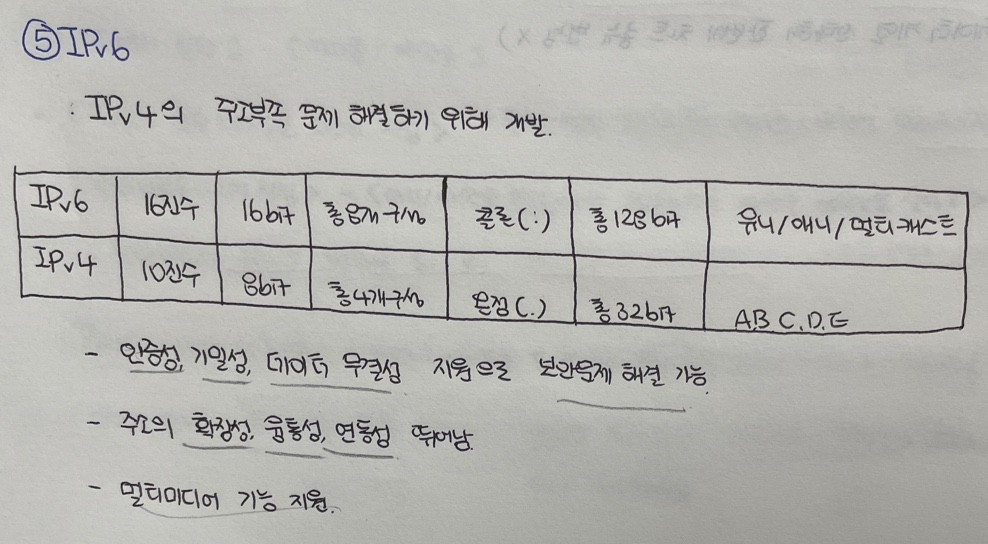 ⑤ IPv6
: IPv4의 주소부족 문제 해결하기 위해 개발.
IPv6 16진수 16bit 총8개 구성 콜론(:) 총128bit 유니/애니/멀티캐스트
IPv4 10진수 8bit 총4개구성 온점(.) 총32bit A.B.C.D.E
- 인증성, 기밀성, 데이터 무결성 지원으로 보안문제 해결 가능.
- 주소의 확장성, 융통성, 연동성 뛰어남.
- 멀티미디어 기능 지원.